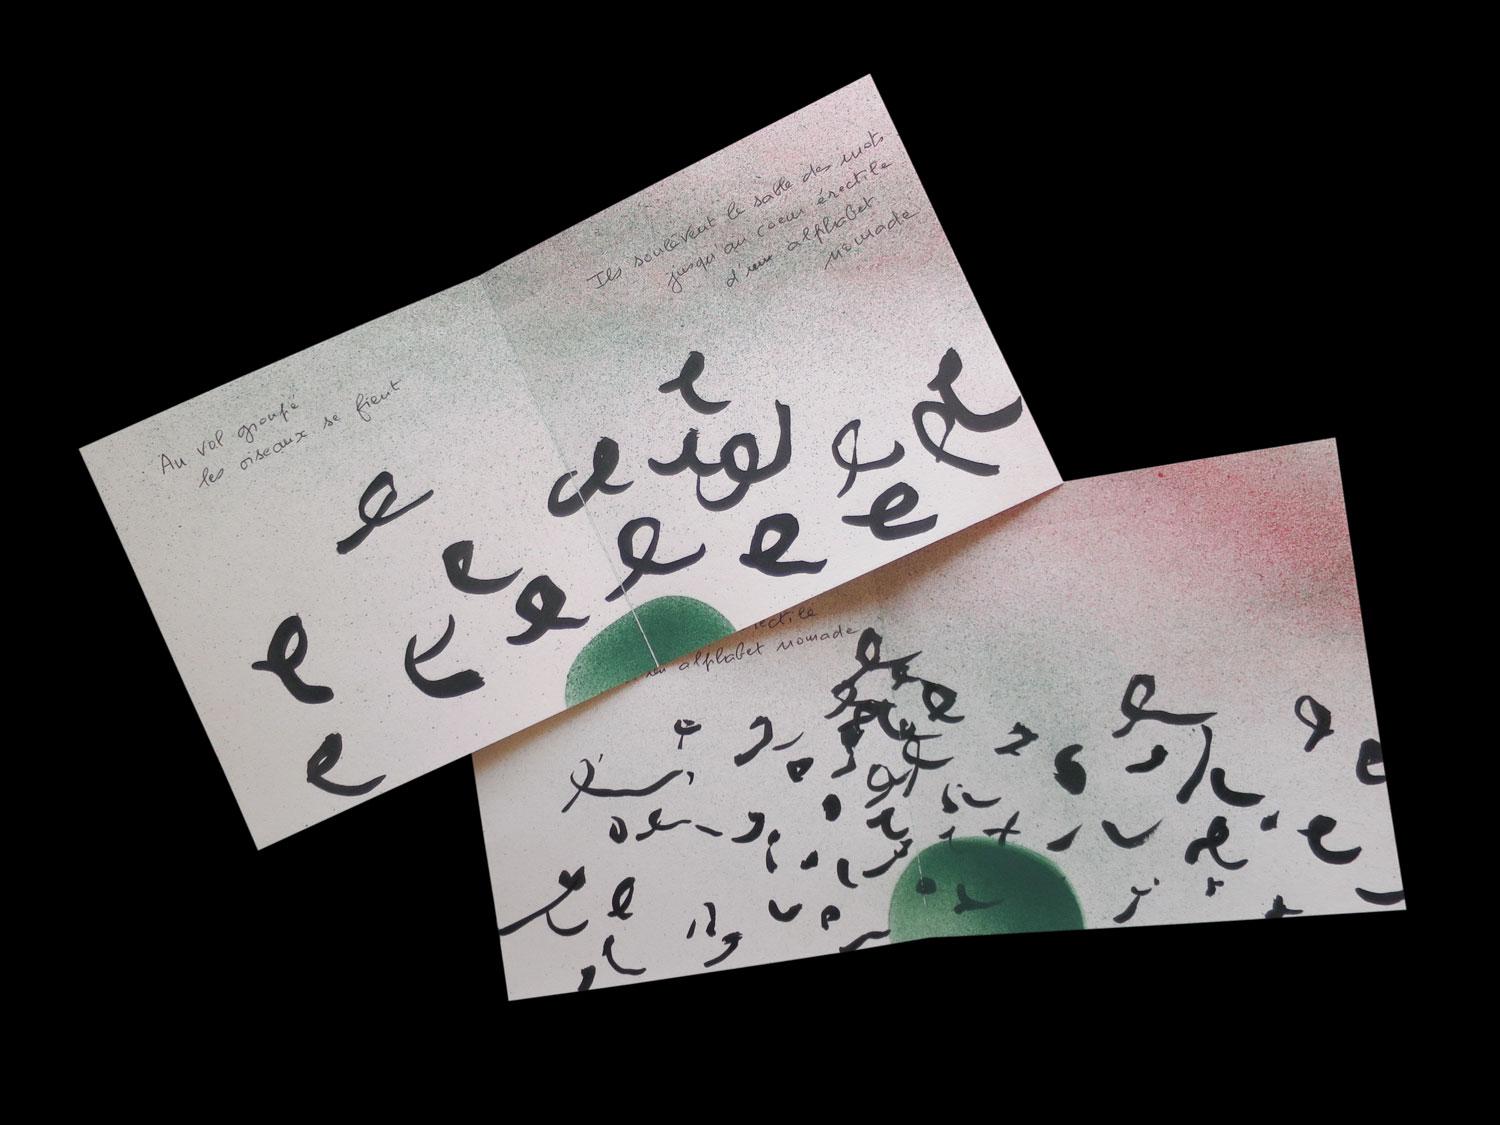 Au vol groupé
les oiseaux se fient
Ils soulèvent le sable des mots
jusqu'au coeur érectile
d'un alphabet
nomade
ectile
un alphabet nomade